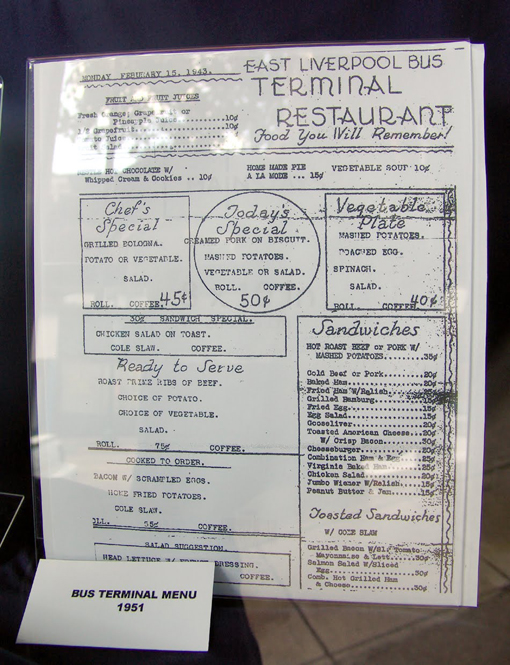 MONDAY FEBRUARY 15, 1943.
EAST LIVERPOOL BUS
TERMINAL
RESTAURANT
Food You Will Remember!
FRUIT AND FRUIT JUICES
Fresh Orange; Grapefruit or
Pineapple Juice....10¢
Grapefruit....10¢
Juice
HOT CHOCOLATE W/
Whipped Cream & Cookies .. 10¢
HOME MADE PIE
A LA MODE ... 15¢
VEGETABLE SOUP 10¢
Chef's
Special
GRILLED BOLOGNA.
POTATO OR VEGETABLE.
SALAD.
ROLL. COFFEE. 45¢
Today's
Special
CREAMED PORK ON BISCUIT.
MASHED POTATOES.
VEGETABLE OR SALAD.
ROLL. COFFEE.
50¢
Vegetable
Plate
MASHED POTATOES.
POACHED EGG.
SPINACH.
SALAD.
ROLL. COFFEE. 40¢
30¢ SANDWICH SPECIAL.
CHICKEN SALAD ON TOAST.
COLE SLAW. COFFEE.
Ready to Serve
ROAST PRIME RIBS OF BEEF.
CHOICE OF POTATO.
CHOICE OF VEGETABLE.
SALAD.
ROLL. 75¢ COFFEE.
COOKED TO ORDER.
BACON W/ SCRAMBLED EGGS.
HOME FRIED POTATOES.
COLE SLAW.
ROLL. 55¢ COFFEE.
SALAD SUGGESTION.
HEAD LETTUCE W/ FRENCH DRESSING.
COFFEE.
Sandwiches
HOT ROAST BEEF or PORK W/
MASHED POTATOES........35¢
Cold Beef or Pork........20¢
Baked Ham........20¢
Fried Ham W/Relish........
Grilled Hamburg........15¢
Fried Egg........15¢
Egg Salad........15¢
Gooseliver........20¢
Toasted American Cheese..20¢
W/ Crisp Bacon........30¢
Cheeseburger........20¢
Combination Ham & Egg....25¢
Virginia Baked Ham........25¢
Chicken Salad........20¢
Jumbo Wiener W/Relish....15¢
Peanut Butter & Jam......15¢
Toasted Sandwiches
W/ COLE SLAW
Grilled Bacon W/Sl. Tomato
Mayonnaise & Lett....30¢
Salmon Salad W/Sliced
Egg........30¢
Comb. Hot Grilled Ham
& Cheese........30¢
BUS TERMINAL MENU
1951